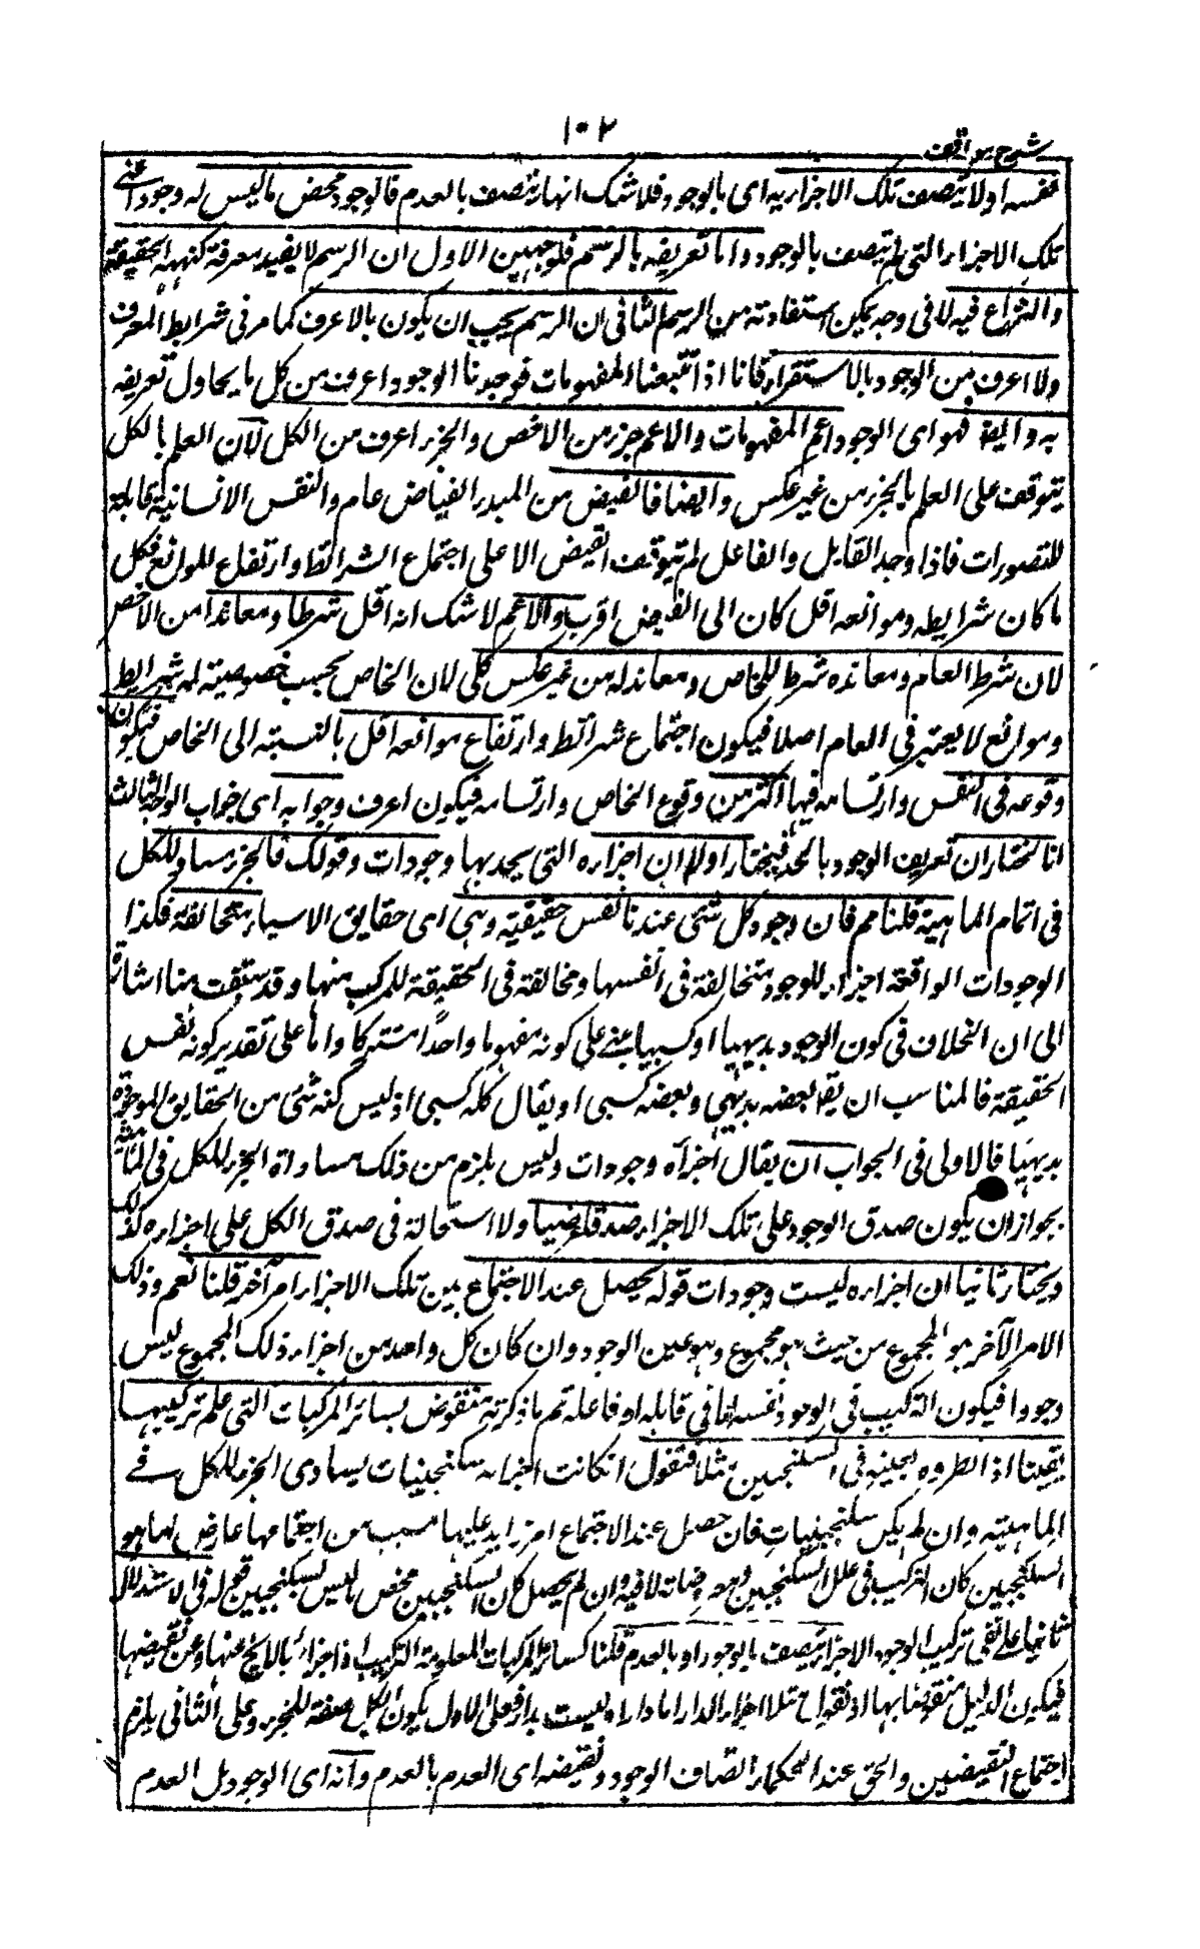 ١٠٢
شرح مواقف
نفسه اولا تتصف تلك الاجزاء به اى بالوجود فلا شك انها تتصف بالعدم فالوجود محض ما ليس له وجود اعنى
تلك الاجزاء التى لم تتصف بالوجود واما تعريفه بالرسم فلوجهين الاول ان الرسم لا يفيد معرفة كنهه الحقيقة
والنزاع فيه لا فى وجه يمكن استفادته من الرسم الثانى ان الرسم يجب ان يكون بالاعرف كما مر فى شرايط المعرف
ولا اعرف من الوجود بالاستقراء فانا اذا تتبعنا المفهومات فوجدنا الوجود اعرف من كل ما يحاول تعريفه
به وايضا فهو اى الوجود اعم المفهومات والاعم جزء من الاخص والجزء اعرف من الكل لان العلم بالكل
يتوقف على العلم بالجزء من غير عكس وايضا فالفيض من المبدء الفياض عام والنفس الانسانية قابلة
للتصورات فاذا وجد القابل والفاعل لم يتوقف الفيض الا على اجتماع الشرائط وارتفاع الموانع فكل
ما كان شرايطه وموانعه اقل كان الى الفيض اقرب والاعم لا شك انه اقل شرطا ومعاندا من الاخص
لان شرط العام ومعانده شرط للخاص ومعاند له من غير عكس كلى لان الخاص بحسب خصوصيته له شرايط
وموانع لا يعتبر فى العام اصلا فيكون اجتماع شرائط وارتفاع موانعه اقل بالنسبة الى الخاص فيكون
وقوعه فى النفس وارتسامه فيها اكثر من وقوع الخاص وارتسامه فيكون اعرف وجوابه اى جواب الوجه الثالث
انا نختار ان تعريف الوجود بالحد فيختار اولا ان اجزاءه التى يحد بها وجودات وقولك فالجزء مساو للكل
فى تمام الماهية قلنا مم فان وجود كل شئ عندنا نفس حقيقته وهى اى حقايق الاشياء متخالفة فكذا
الوجودات الواقعة اجزاء للوجود متخالفة فى انفسها ومخالفة فى الحقيقة للمركب منها وقد سبقت منا اشارة
الى ان الخلاف فى كون الوجود بديهيا او كسبيا مبنى على كونه مفهوما واحدا مشتركا واما على تقدير كونه نفس
الحقيقة فالمناسب ان يقا بعضه بديهى وبعضه كسبى او يقال كله كسبى اذ ليس كنه شئ من الحقايق الموجودة
بديهيا فالاولى فى الجواب ان يقال اجزاؤه وجودات وليس يلزم من ذلك مساواة الجزء للكل فى الماهية
بجواز ان يكون صدق الوجود على تلك الاجزاء صدقا عرضيا ولا استحالة فى صدق الكل على اجزاءه كذلك
ويختار ثانيا ان اجزاءه ليست وجودات قوله يحصل عند الاجتماع بين تلك الاجزاء امر آخر قلنا نعم وذلك
الامر الآخر هو المجموع من حيث هو مجموع وهو عين الوجود وان كان كل واحد من اجزاء ذلك المجموع ليس
وجودا فيكون التركيب فى الوجود نفسه لا فى قابله او فاعله ثم ما ذكرته منقوض بسائر المركبات التى علم تركيبها
يقينا اذ نطرده بعينه فى السكنجبين مثلا فنقول ان كانت اجزاءه سكنجبينات يساوى الجزء للكل فى
الماهية وان لم يكن سكنجبينات فان حصل عند الاجتماع امر زايد عليها مسبب من اجتماعها عارض لها هو
السكنجبين كان التركيب فى علل السكنجبين ومعروضاته لا فيه وان لم يحصل كان السكنجبين محض ما ليس بسكنجبين قوله فى الاستدلال
ثانيا على نفى تركيب الوجود الاجزاء تتصف بالوجود او بالعدم قلنا كسائر المركبات المعلومة التركيب اذ اجزاء بالا يخ عنها وعن نقيضها
فيكون الدليل منقوضا بها اذ نقول مثلا اجزاء الدار اما دار او ليست بدار فعلى الاول يكون الكل صفة للجزء وعلى الثانى يلزم
اجتماع النقيضين والحق عند الحكماء اتصاف الوجود ونقيضه اى العدم بالعدم وانه اى الوجود بل العدم